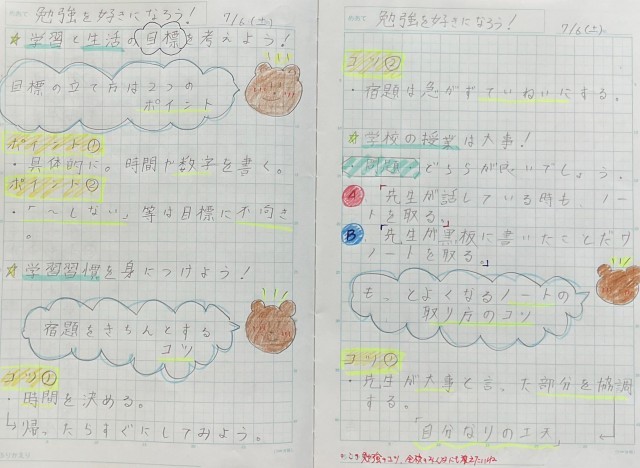 勉強を好きになろう!
7/6(土)
☆学習と生活の目標を考えよう!
目標の立て方は2つの
ポイント
ポイント①
・具体的に。時間や数字を書く。
ポイント②
・「〜しない」等は目標に不向き
。
☆学習習慣を身につけよう!
宿題をきちんとする
コツ
コツ①
・時間を決める。
↳帰ったらすぐにしてみよう。
勉強を好きになろう!
7/6(土)
コツ②
・宿題は急がずていねいにする。
☆学校の授業は大事!
・問題…どちらが良いでしょう。
A 「先生が話している時も、ノー
トを取る。」
B 「先生が黒板に書いたことだけ
ノートを取る。」
もっとよくなるノートの
取り方のコツ
コツ①
・先生が大事と言った部分を協調
する。
「自分なりの工夫」